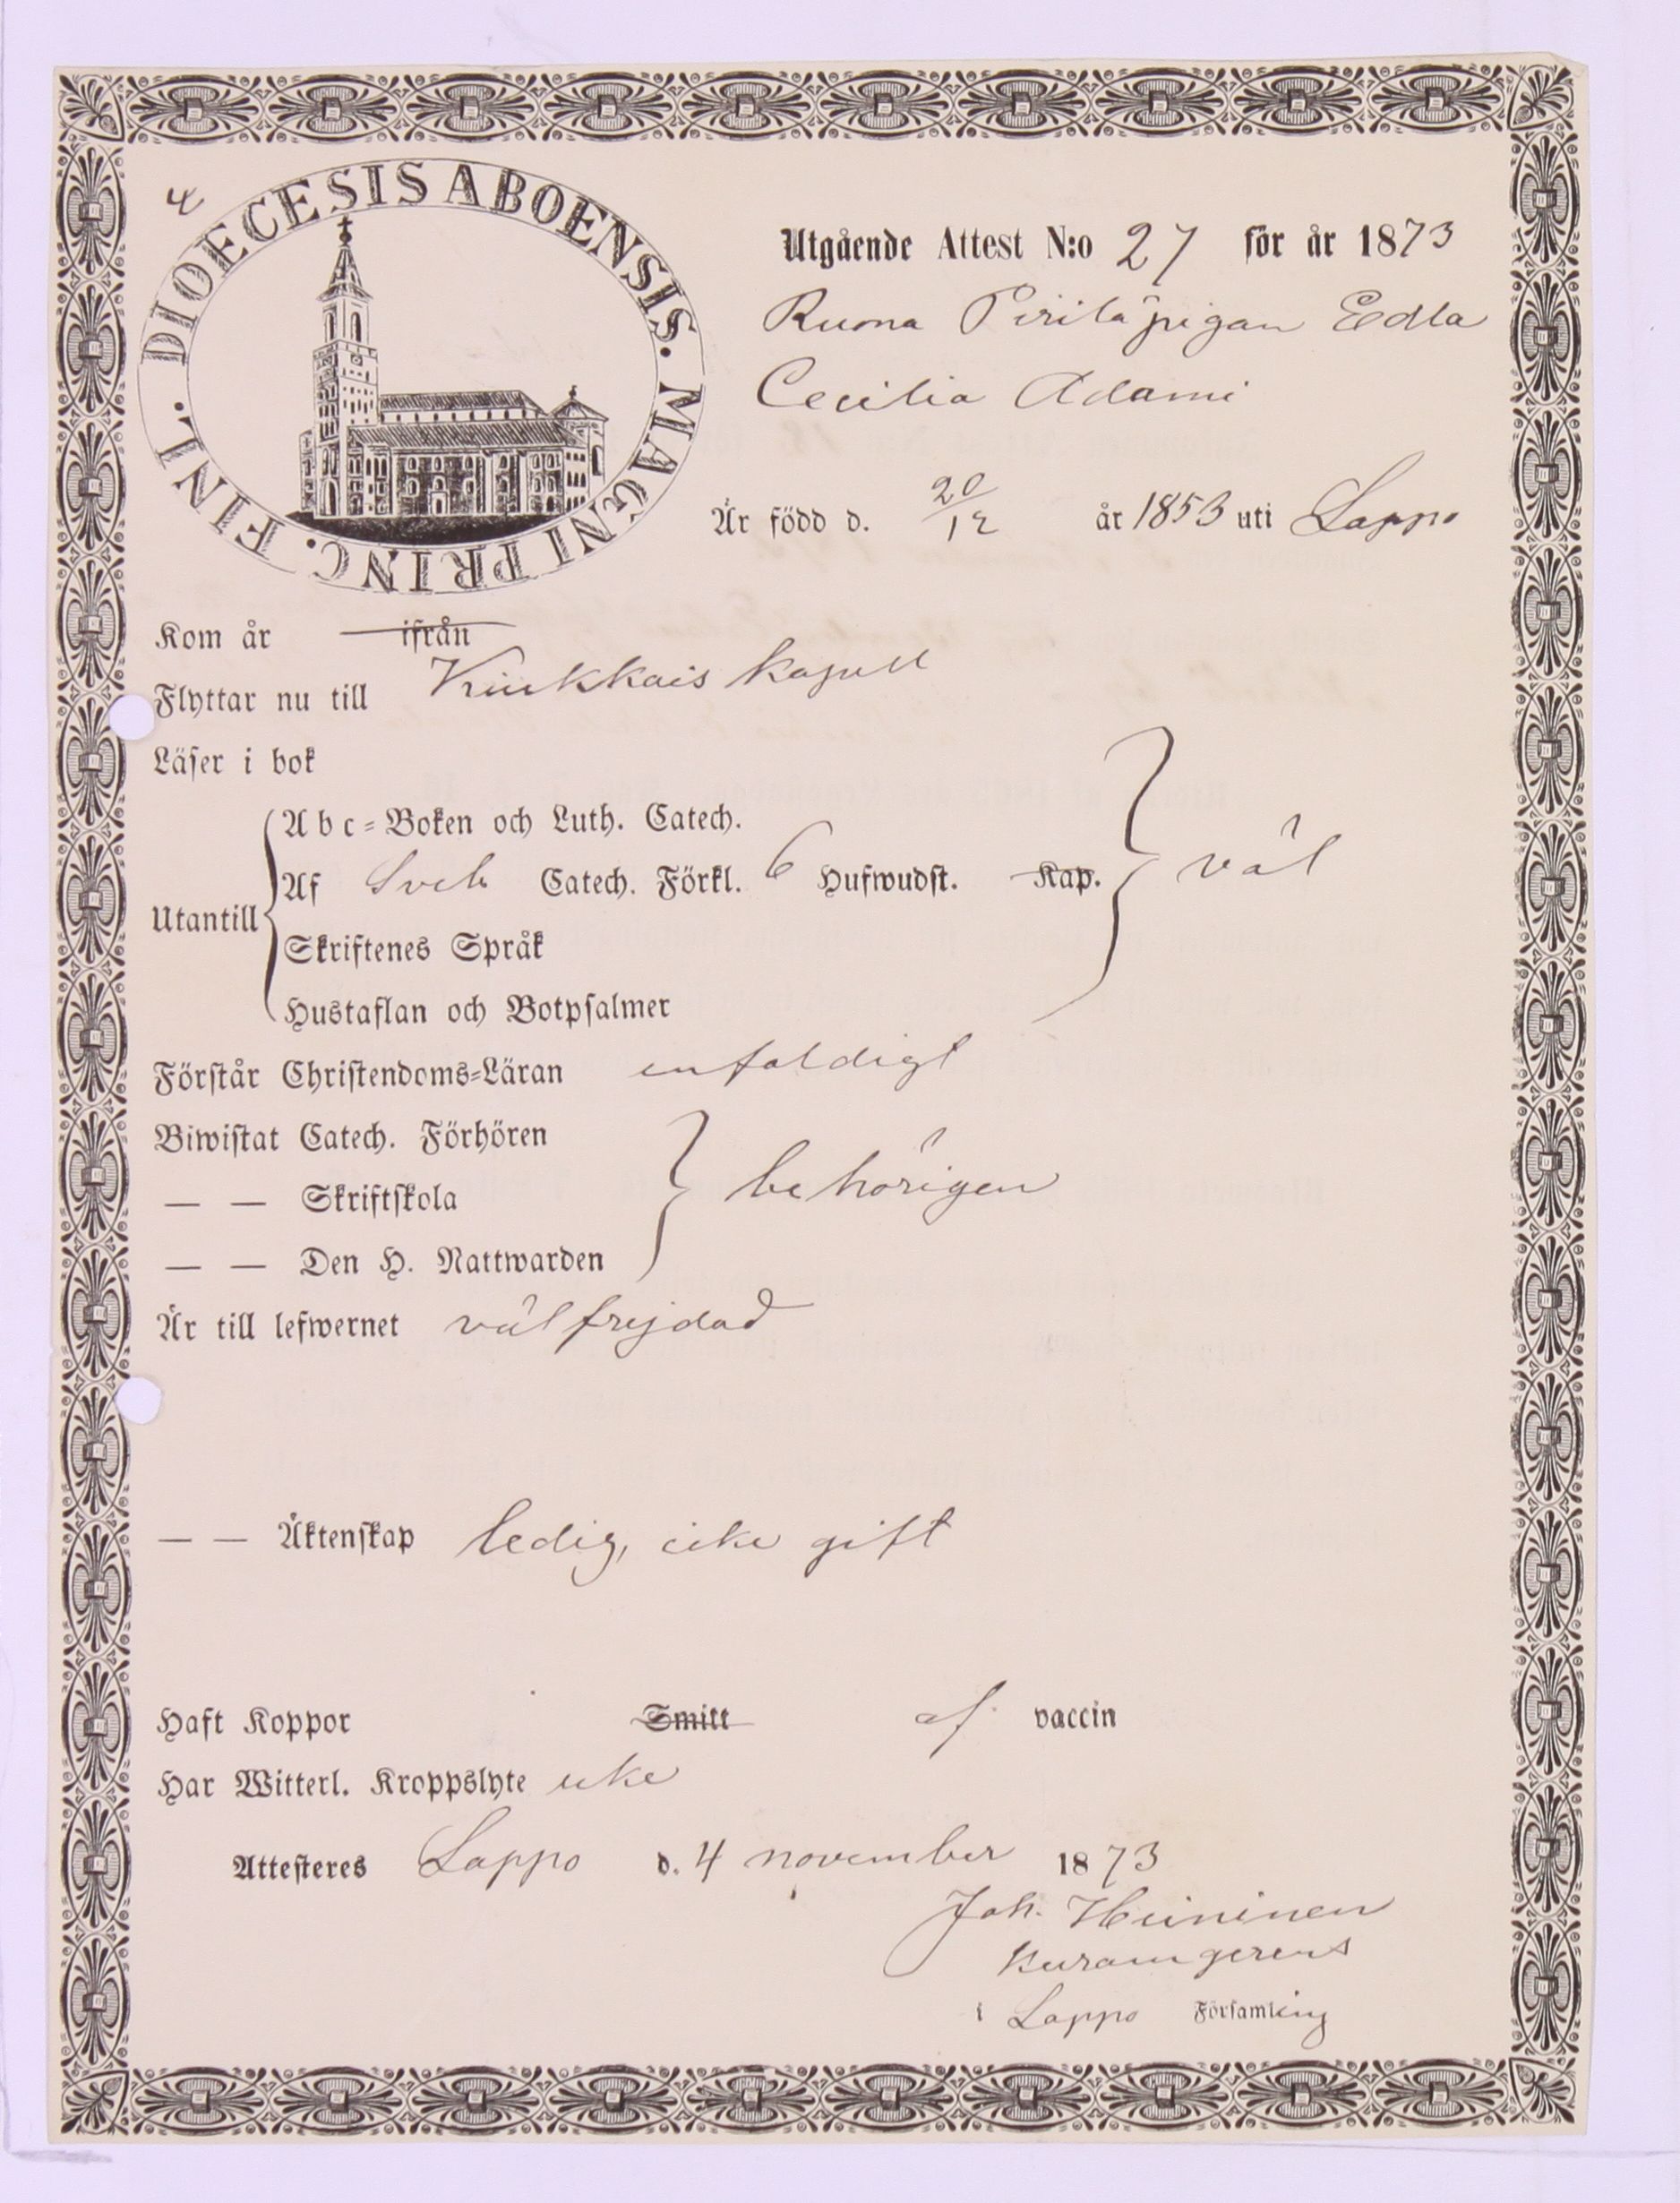 DIOECESIS ABOENSIS. MAGNI PRINC. FINL.
Utgående Attest N:o 27 för år 1873
Ruona Pirilä pigan Edla
Cecilia Adami
Är född d. 20/12 år 1853 uti Lappo
Kom år ifrån
Flyttar nu till kapell
Läser i bok
Utantill
Abc-Boken och Luth. Catech.
Af Sveb Catech. Förkl. 6 Hufwudst. Kap. väl
Skriftenes Språk
Hustaflan och Botpsalmer
Förstår Christendoms-Läran enfaldigt
Biwistat Catech. Förhören
— — Skriftskola behörigen
— — Den H. Nattwarden
Är till lefwernet välfrejdad
— — Äktenskap ledig, icke gift
Haft Koppor Smitt af vaccin
Har Witterl. Kroppslyte icke
Attesteres Lappo d. 4 november 1873
Joh. Heininen
kuram gerens
i Lappo Församling